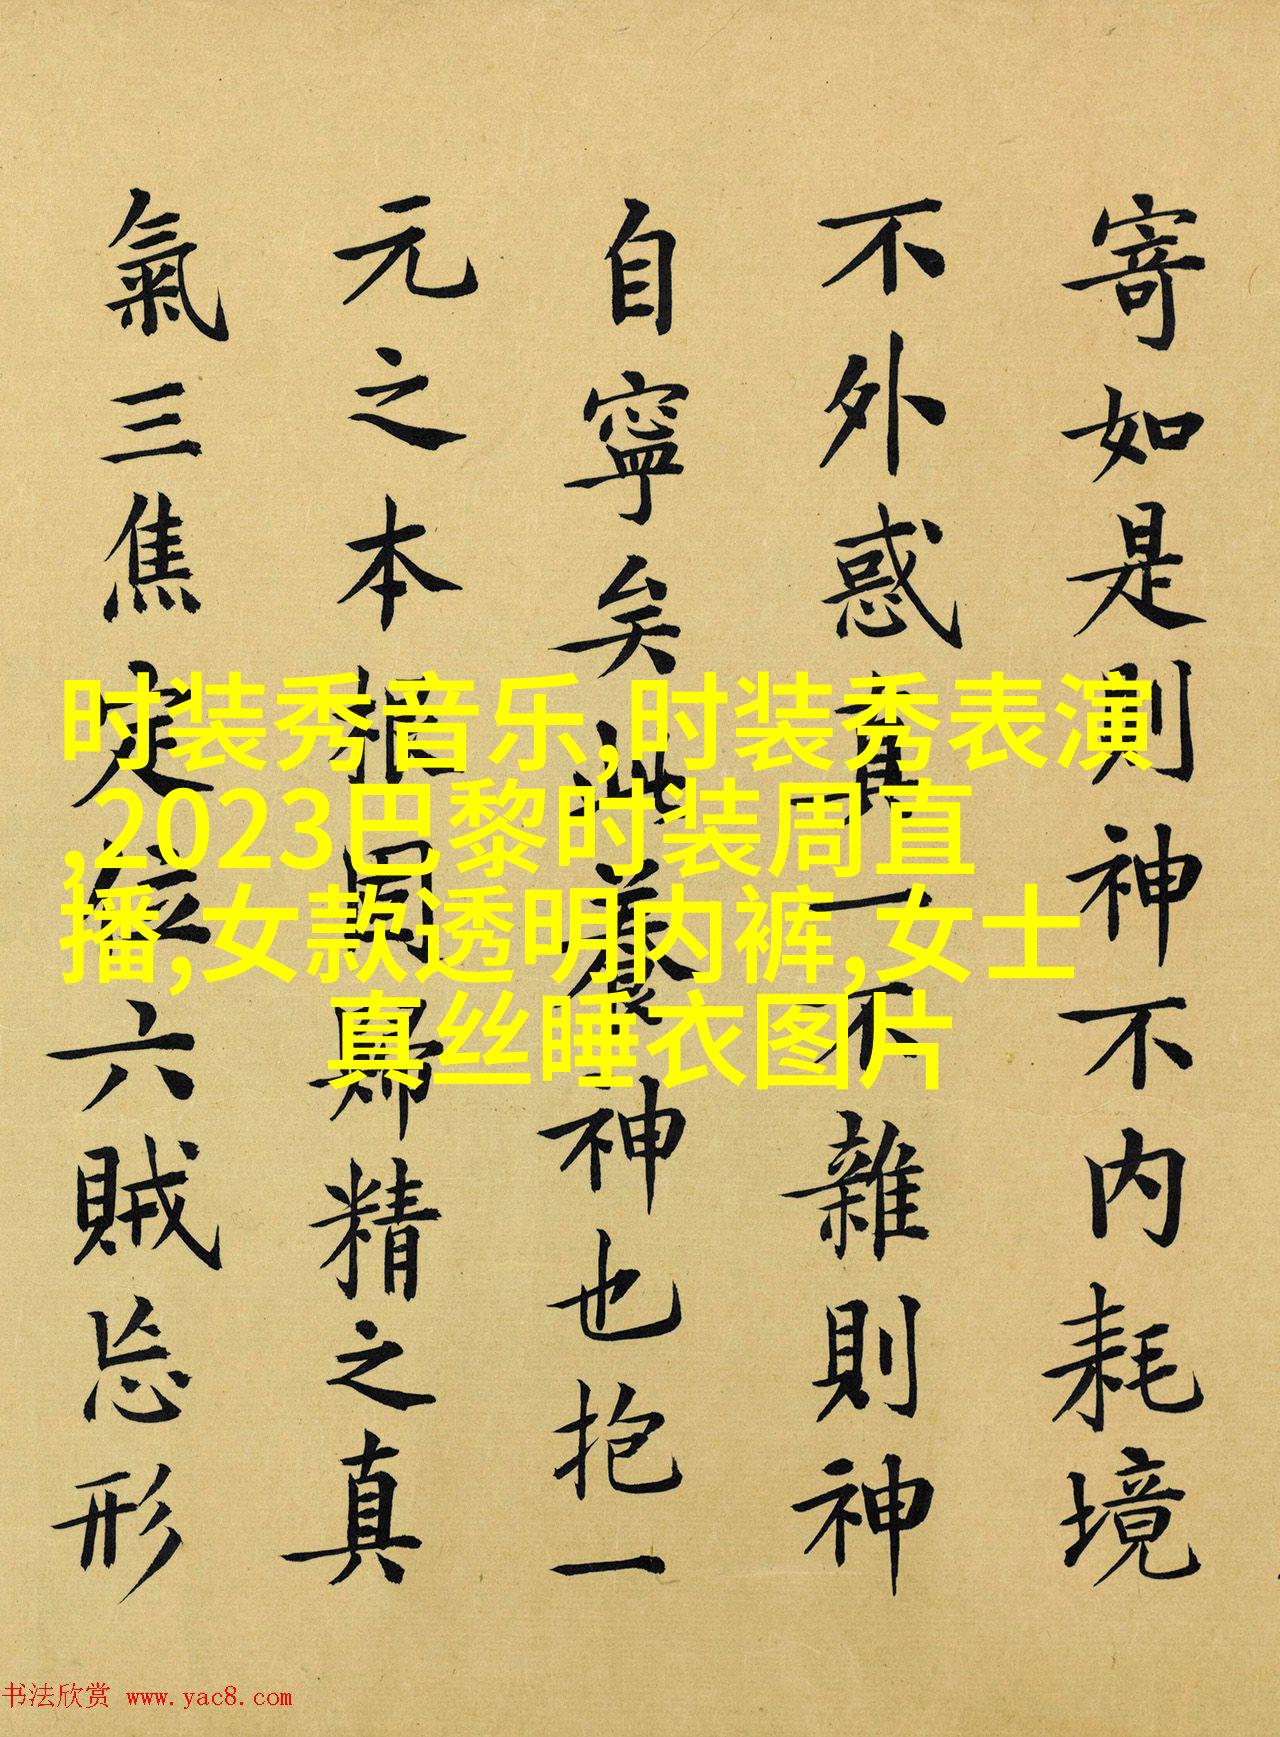 寄如是則神不内耗境
不外惑真一不雜則神
自寧矣此養神也抱一
元之本根固歸精之真
氣三焦定位六賊忘形
时装秀音乐,时装秀表演
,2023巴黎时装周直
播,女款透明内裤,女士
真丝睡衣图片
书法欣赏 www.yac8.com